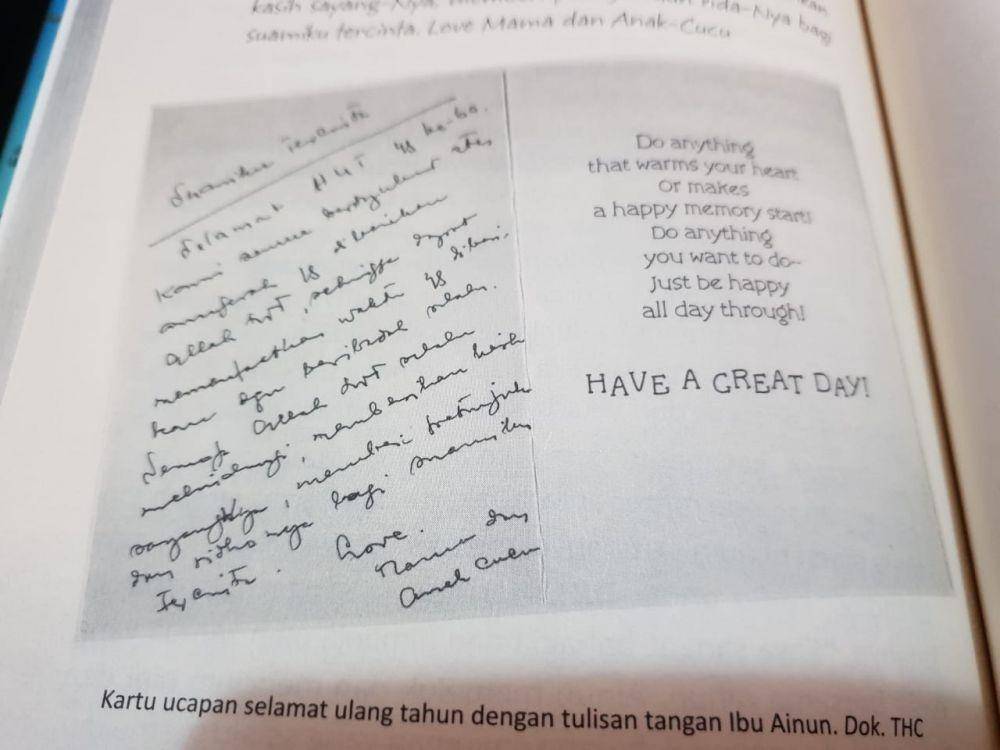 kasih sayang-Nya, rida-Nya bagi
suamiku tercinta. Love Mama dan Anak-Cucu
Suamiku tercinta
Selamat HUT yg ke-60.
Kami semua bersyukur atas
anugerah yg diberikan
Allah SWT, sehingga dapat
memanfaatkan waktu yg diberi-
kan beribadah selalu.
Semoga Allah SWT selalu
melindungi, memberikan kasih
sayangNya, memberi petunjuk
dan ridhonya bagi suamiku
tercinta. Love.
Mama dan
Anak cucu
Do anything
that warms your heart
Or makes
a happy memory start!
Do anything
you want to do--
Just be happy
all day through!
HAVE A GREAT DAY!
Kartu ucapan selamat ulang tahun dengan tulisan tangan Ibu Ainun. Dok. THC